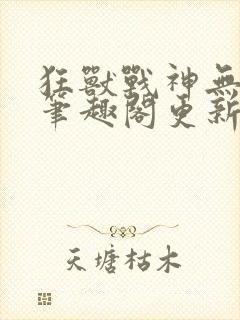 狂獸戰神無
筆趣閣更新
天塘枯木